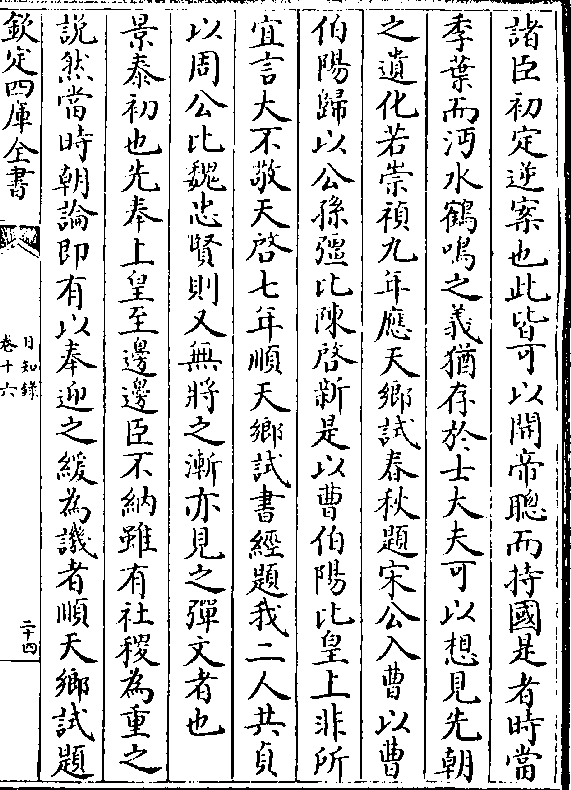 諸臣初定逆案也此皆可以開帝聰而持國是者時當
季葉而沔水鶴鳴之義猶存於士大夫可以想見先朝
之遺化若崇禎九年應天鄉試春秋題宋公入曹以曹
伯陽歸以公孫彊比陳啓新是以曹伯陽比皇上非所
宜言大不敬天啓七年順天鄉試書經題我二人共貞
以周公比魏忠賢則又無將之漸亦見之彈文者也
景泰初也先奉上皇至邊邊臣不納雖有社稷為重之
説然當時朝論即有以奉迎之緩為譏者順天鄉試題
欽定四庫全書
日知錄
卷十六
二十四